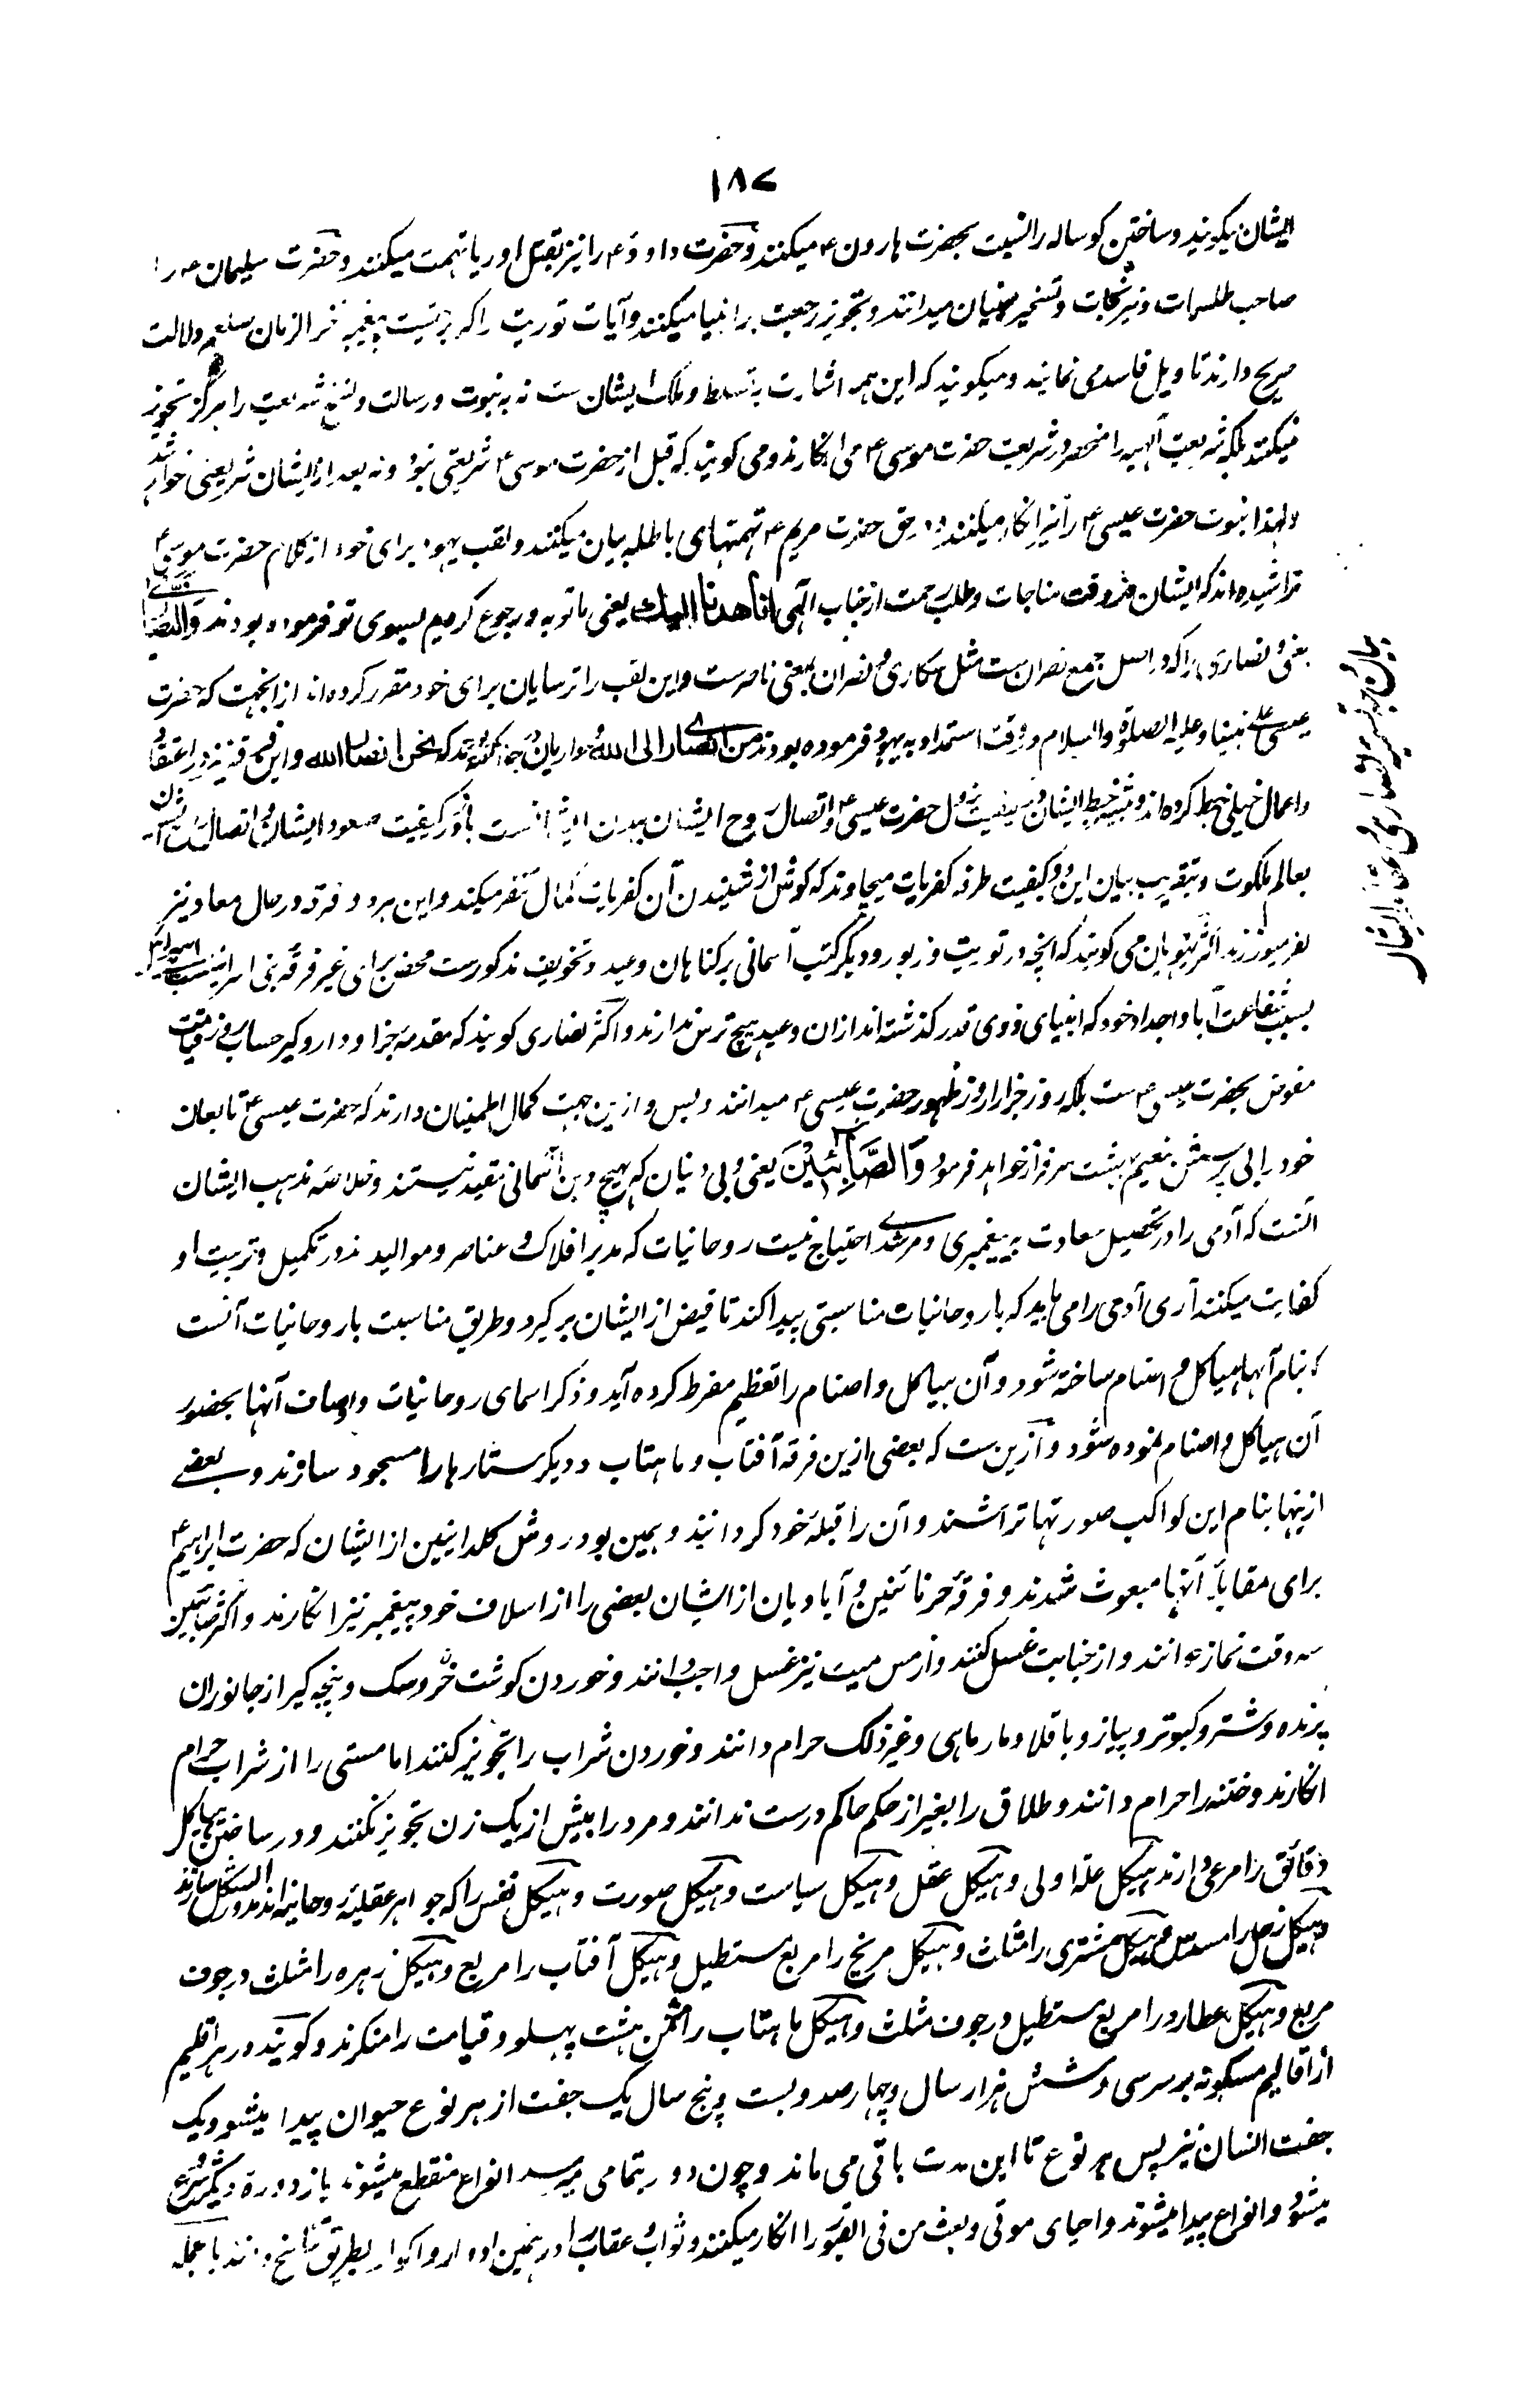 ۱۸۷
ایشان میگویند و ساختن گوساله را نسبت بحضرت هارون ع میکنند و حضرت داود ع را نیز بقتل اوریا تهمت میکنند و حضرت سلیمان ع را
صاحب طلسمات و نیرنجات و تسخیر جنیان میدانند و تجویز رجعت بر انبیا میکنند و آیات توریت را که بر بعثت پیغمبر آخر الزمان صلعم دلالت
صریح دارند تاویل فاسد می نمایند و میگویند که این همه اشارت به تسلط و ملک ایشان ست نه به نبوت و رسالت و نسخ شریعت را هرگز تجویز
نمیکنند بلکه شریعت آلهیه را منحصر در شریعت حضرت موسی ع می انگارند و می گویند که قبل از حضرت موسی ع شریعتی نبود و نه بعد از ایشان شریعتی خواهد شد
و لهذا نبوت حضرت عیسی ع را نیز انکار میکنند و در حق حضرت مریم ع تهمتهای باطله بیان میکنند و لقب یهود برای خود از کلام حضرت موسی ع
تراشیده اند که ایشان در وقت مناجات و طلب رحمت از جناب آلهی انا هدنا الیك یعنی ما توبه و رجوع کردیم بسوی تو فرموده بودند وَالنَّصَارٰی
یعنی و نصاری را که در اصل جمع نصران ست مثل سکاری و نصران بمعنی ناصر ست و این لقب را ترسایان برای خود مقرر کرده اند از انجهت که حضرت
عیسی علی نبینا و علیه الصلوة والسلام در وقت استمداد به یهود فرموده بودند من انصاری الی الله حواریان در جواب گفته بودند که نحن انصار الله و این فرقه نیز در اعتقاد
و اعمال خیلی خبط کرده اند و منشا خبط ایشان کیفیت نزول حضرت عیسی ع و اتصال روح ایشان ببدن ایشانست باز در کیفیت صعود ایشان و اتصال ایشان
بعالم ملکوت و بتقریب بیان این دو کیفیت طرفه کفریات میجاوند که گوش از شنیدن آن کفریات کمال تنفر میکند و این هر دو فرقه در حال معاد نیز
کفر میورزند اکثر یهودیان می گویند که آنچه در توریت و زبور و دیگر کتب آسمانی بر گناهان وعید و تخویف مذکورست محض برای غیر فرقه بنی اسرائیل ست
بسبب شفاعت آبا و اجداد خود که انبیای ذوی قدر گذشته اند ازان وعید هیچ ترس ندارند و اکثر نصاری گویند که مقدمه جزا و دار و گیر حساب روز قیامت
مفوض بحضرت عیسی ع ست بلکه روز جزا را روز ظهور حضرت عیسی ع میدانند و بس و ازین جهت کمال اطمینان دارند که حضرت عیسی ع تابعان
خود را بی پرسش بنعیم بهشت سرفراز خواهد فرمود وَالصَّابِئِیْنَ یعنی و بی دینان که بهیچ دین آسمانی مقید نیستند و خلاصه مذهب ایشان
آنست که آدمی را در تحصیل سعادت به پیغمبری و مرشدی احتیاج نیست روحانیات که مدبر افلاک و عناصر و موالیدند در تکمیل و تربیت او
کفایت میکنند آری آدمی را می باید که با روحانیات مناسبتی پیدا کند تا فیض از ایشان بر گیرد و طریق مناسبت با روحانیات آنست
که بنام آنها هیاکل و اصنام ساخته شود و آن هیاکل و اصنام را تعظیم مفرط کرده آید و ذکر اسمای روحانیات و اوصاف آنها بحضور
آن هیاکل و اصنام نموده شود و ازین ست که بعضی ازین فرقه آفتاب و ماهتاب و دیگر ستارها را مسجود سازند و بعضی
از ینها بنام این کواکب صورتها تراشند و آن را قبله خود گردانند و همین بود روش کلدانیین از ایشان که حضرت ابراهیم ع
برای مقابله آنها مبعوث شدند و فرقه حرنانئین و آبادیان از ایشان بعضی را از اسلاف خود پیغمبر نیز انگارند و اکثر صابئین
سه وقت نماز دانند و از جنابت غسل کنند و از مس میت نیز غسل واجب دانند و خوردن گوشت خر و سگ و پنجه گیر از جانوران
پرنده و شتر و کبوتر و پیاز و باقلا و مار ماهی و غیر ذلک حرام دانند و خوردن شراب را تجویز کنند اما مستی را از شراب حرام
انگارند و ختنه را حرام دانند و طلاق را بغیر از حکم حاکم درست ندانند و مرد را بیش از یک زن تجویز نکنند و در ساختن هیاکل
دقائق را مرعی دارند هیکل علة اولی و هیکل عقل و هیکل سیاست و هیکل صورت و هیکل نفس را که جواهر عقلیه روحانیه اند مدور الشکل سازند
و هیکل زحل را مسدس و هیکل مشتری را مثلث و هیکل مریخ را مربع مستطیل و هیکل آفتاب را مربع و هیکل زهره را مثلث در جوف
مربع و هیکل عطارد را مربع مستطیل در جوف مثلث و هیکل ماهتاب را مثمن هشت پهلو و قیامت را منکرند و گویند در هر اقلیم
از اقالیم مسکونه بر سر سی و شش هزار سال و چهار صد و بست و پنج سال یک جفت از هر نوع حیوان پیدا میشود و یک
جفت انسان نیز پس هر نوع تا این مدت باقی می ماند و چون دور بتمامی میرسد انواع منقطع میشوند باز دوره دیگر شروع
میشود و انواع پیدا میشوند و احیای موتی و بعث من فی القبور را انکار میکنند و ثواب و عقاب را در همین ادوار و اکوار بطریق تناسخ دانند بالجمله
بیان وجه تسمیه نصاری و عقائد ایشان